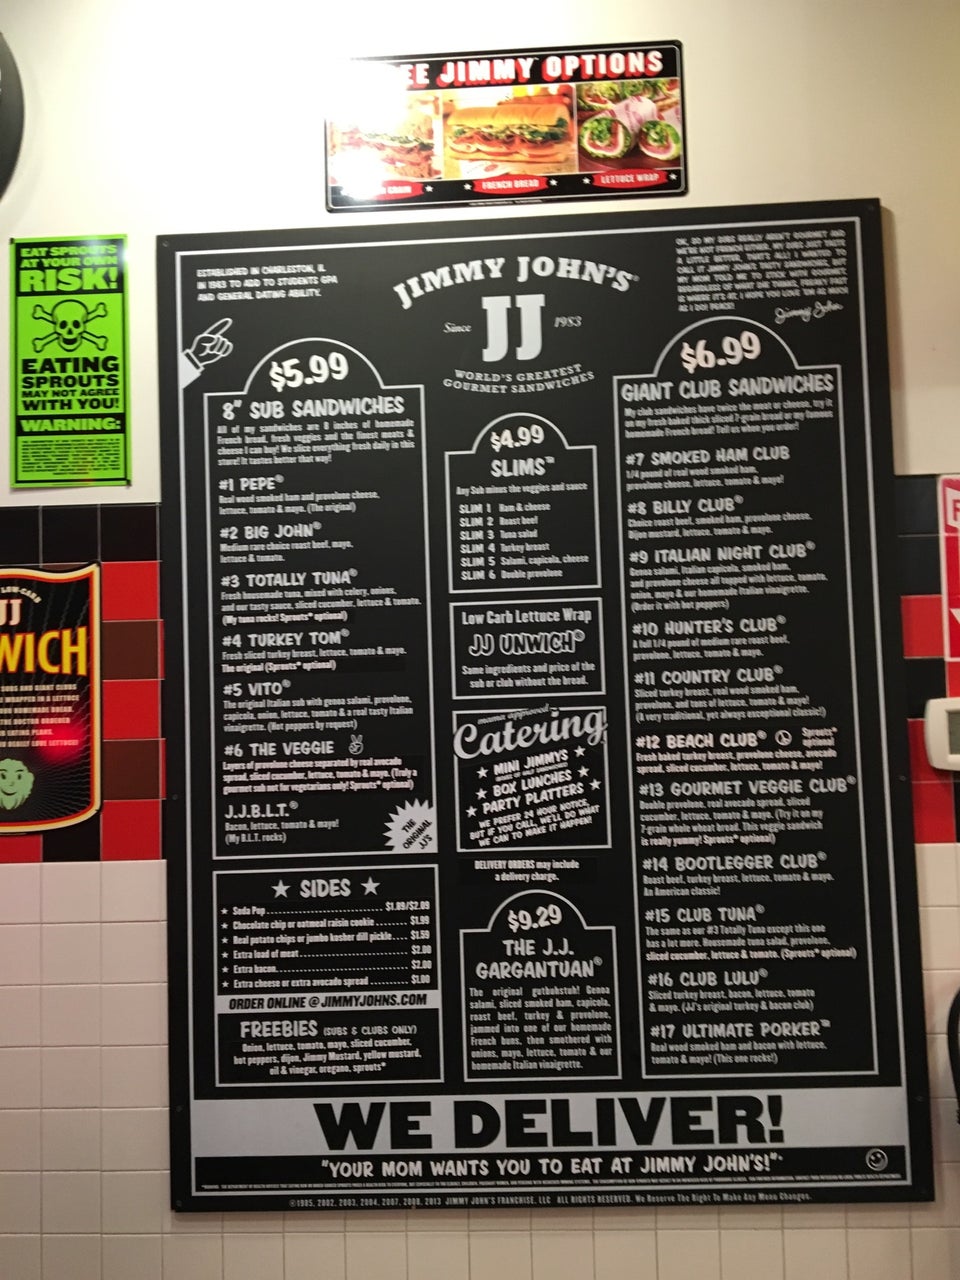 EE JIMMY OPTIONS
GRAIN
FRENCH BREAD
LETTUCE WRAP
EAT SPROUTS
AT YOUR OWN
RISK!
EATING
SPROUTS
MAY NOT AGREE
WITH YOU!
WARNING:
LOW-CARB
JJ
WICH
ESTABLISHED IN CHARLESTON, IL
IN 1983 TO ADD TO STUDENTS GPA
AND GENERAL DATING ABILITY.
JIMMY JOHN'S®
Since JJ 1983
WORLD'S GREATEST
GOURMET SANDWICHES
OK, SO MY SUBS REALLY AREN'T GOURMET AND
WE'RE NOT FRENCH EITHER. MY SUBS JUST TASTE
A LITTLE BETTER, THAT'S ALL! I WANTED TO
CALL IT JIMMY JOHN'S TASTY SANDWICHES, BUT
MY MOM TOLD ME TO STICK WITH GOURMET.
REGARDLESS OF WHAT SHE THINKS, FREAKY FAST
IS WHERE IT'S AT. I HOPE YOU LOVE 'EM AS MUCH
AS I DO! PEACE!
Jimmy John
$5.99
8" SUB SANDWICHES
All of my sandwiches are 8 inches of homemade
French bread, fresh veggies and the finest meats &
cheese I can buy! We slice everything fresh daily in this
store! It tastes better that way!
#1 PEPE®
Real wood smoked ham and provolone cheese,
lettuce, tomato & mayo. (The original)
#2 BIG JOHN®
Medium rare choice roast beef, mayo,
lettuce & tomato.
#3 TOTALLY TUNA®
Fresh housemade tuna, mixed with celery, onions,
and our tasty sauce, sliced cucumber, lettuce & tomato.
(My tuna rocks! Sprouts* optional)
#4 TURKEY TOM®
Fresh sliced turkey breast, lettuce, tomato & mayo.
The original (Sprouts* optional)
#5 VITO®
The original Italian sub with genoa salami, provolone,
capicola, onion, lettuce, tomato & a real tasty Italian
vinaigrette. (Hot peppers by request)
#6 THE VEGGIE
Layers of provolone cheese separated by real avocado
spread, sliced cucumber, lettuce, tomato & mayo. (Truly a
gourmet sub not for vegetarians only! Sprouts* optional)
J.J.B.L.T.®
Bacon, lettuce, tomato & mayo!
(My B.L.T. rocks)
THE
ORIGINAL
JJ'S
★ SIDES ★
★ Soda Pop $1.89/$2.09
★ Chocolate chip or oatmeal raisin cookie $1.99
★ Real potato chips or jumbo kosher dill pickle $1.59
★ Extra load of meat $2.00
★ Extra bacon $2.00
★ Extra cheese or extra avocado spread $1.00
ORDER ONLINE @ JIMMYJOHNS.COM
FREEBIES (SUBS & CLUBS ONLY)
Onion, lettuce, tomato, mayo, sliced cucumber,
hot peppers, dijon, Jimmy Mustard, yellow mustard,
oil & vinegar, oregano, sprouts*
$4.99
SLIMS™
Any Sub minus the veggies and sauce
SLIM 1 Ham & cheese
SLIM 2 Roast beef
SLIM 3 Tuna salad
SLIM 4 Turkey breast
SLIM 5 Salami, capicola, cheese
SLIM 6 Double provolone
Low Carb Lettuce Wrap
JJ UNWICH®
Same ingredients and price of the
sub or club without the bread.
mama approved
Catering
★ MINI JIMMYS ★
★ BOX LUNCHES ★
★ PARTY PLATTERS ★
WE PREFER 24 HOUR NOTICE,
BUT IF YOU CALL, WE'LL DO WHAT
WE CAN TO MAKE IT HAPPEN!
DELIVERY ORDERS may include
a delivery charge.
$9.29
THE J.J.
GARGANTUAN®
The original gutbuhstuh! Genoa
salami, sliced smoked ham, capicola,
roast beef, turkey & provolone,
jammed into one of our homemade
French buns, then smothered with
onions, mayo, lettuce, tomato & our
homemade Italian vinaigrette.
$6.99
GIANT CLUB SANDWICHES
My club sandwiches have twice the meat or cheese, try it
on my fresh baked thick sliced 7-grain bread or my famous
homemade French bread! Tell us when you order!
#7 SMOKED HAM CLUB
1/4 pound of real wood smoked ham,
provolone cheese, lettuce, tomato & mayo!
#8 BILLY CLUB®
Choice roast beef, smoked ham, provolone cheese,
Dijon mustard, lettuce, tomato & mayo.
#9 ITALIAN NIGHT CLUB®
Genoa salami, Italian capicola, smoked ham,
and provolone cheese all topped with lettuce, tomato,
onion, mayo & our homemade Italian vinaigrette.
(Order it with hot peppers)
#10 HUNTER'S CLUB®
A full 1/4 pound of medium rare roast beef,
provolone, lettuce, tomato & mayo.
#11 COUNTRY CLUB®
Sliced turkey breast, real wood smoked ham,
provolone, and tons of lettuce, tomato & mayo!
(A very traditional, yet always exceptional classic!)
#12 BEACH CLUB® Sprouts* optional
Fresh baked turkey breast, provolone cheese, avocado
spread, sliced cucumber, lettuce, tomato & mayo!
#13 GOURMET VEGGIE CLUB®
Double provolone, real avocado spread, sliced
cucumber, lettuce, tomato & mayo. (Try it on my
7-grain whole wheat bread. This veggie sandwich
is really yummy! Sprouts* optional)
#14 BOOTLEGGER CLUB®
Roast beef, turkey breast, lettuce, tomato & mayo.
An American classic!
#15 CLUB TUNA®
The same as our #3 Totally Tuna except this one
has a lot more. Housemade tuna salad, provolone,
sliced cucumber, lettuce & tomato. (Sprouts* optional)
#16 CLUB LULU®
Sliced turkey breast, bacon, lettuce, tomato
& mayo. (JJ's original turkey & bacon club)
#17 ULTIMATE PORKER™
Real wood smoked ham and bacon with lettuce,
tomato & mayo! (This one rocks!)
WE DELIVER!
"YOUR MOM WANTS YOU TO EAT AT JIMMY JOHN'S!"®
©1985, 2002, 2003, 2004, 2007, 2008, 2013 JIMMY JOHN'S FRANCHISE, LLC ALL RIGHTS RESERVED. We Reserve The Right To Make Any Menu Changes.